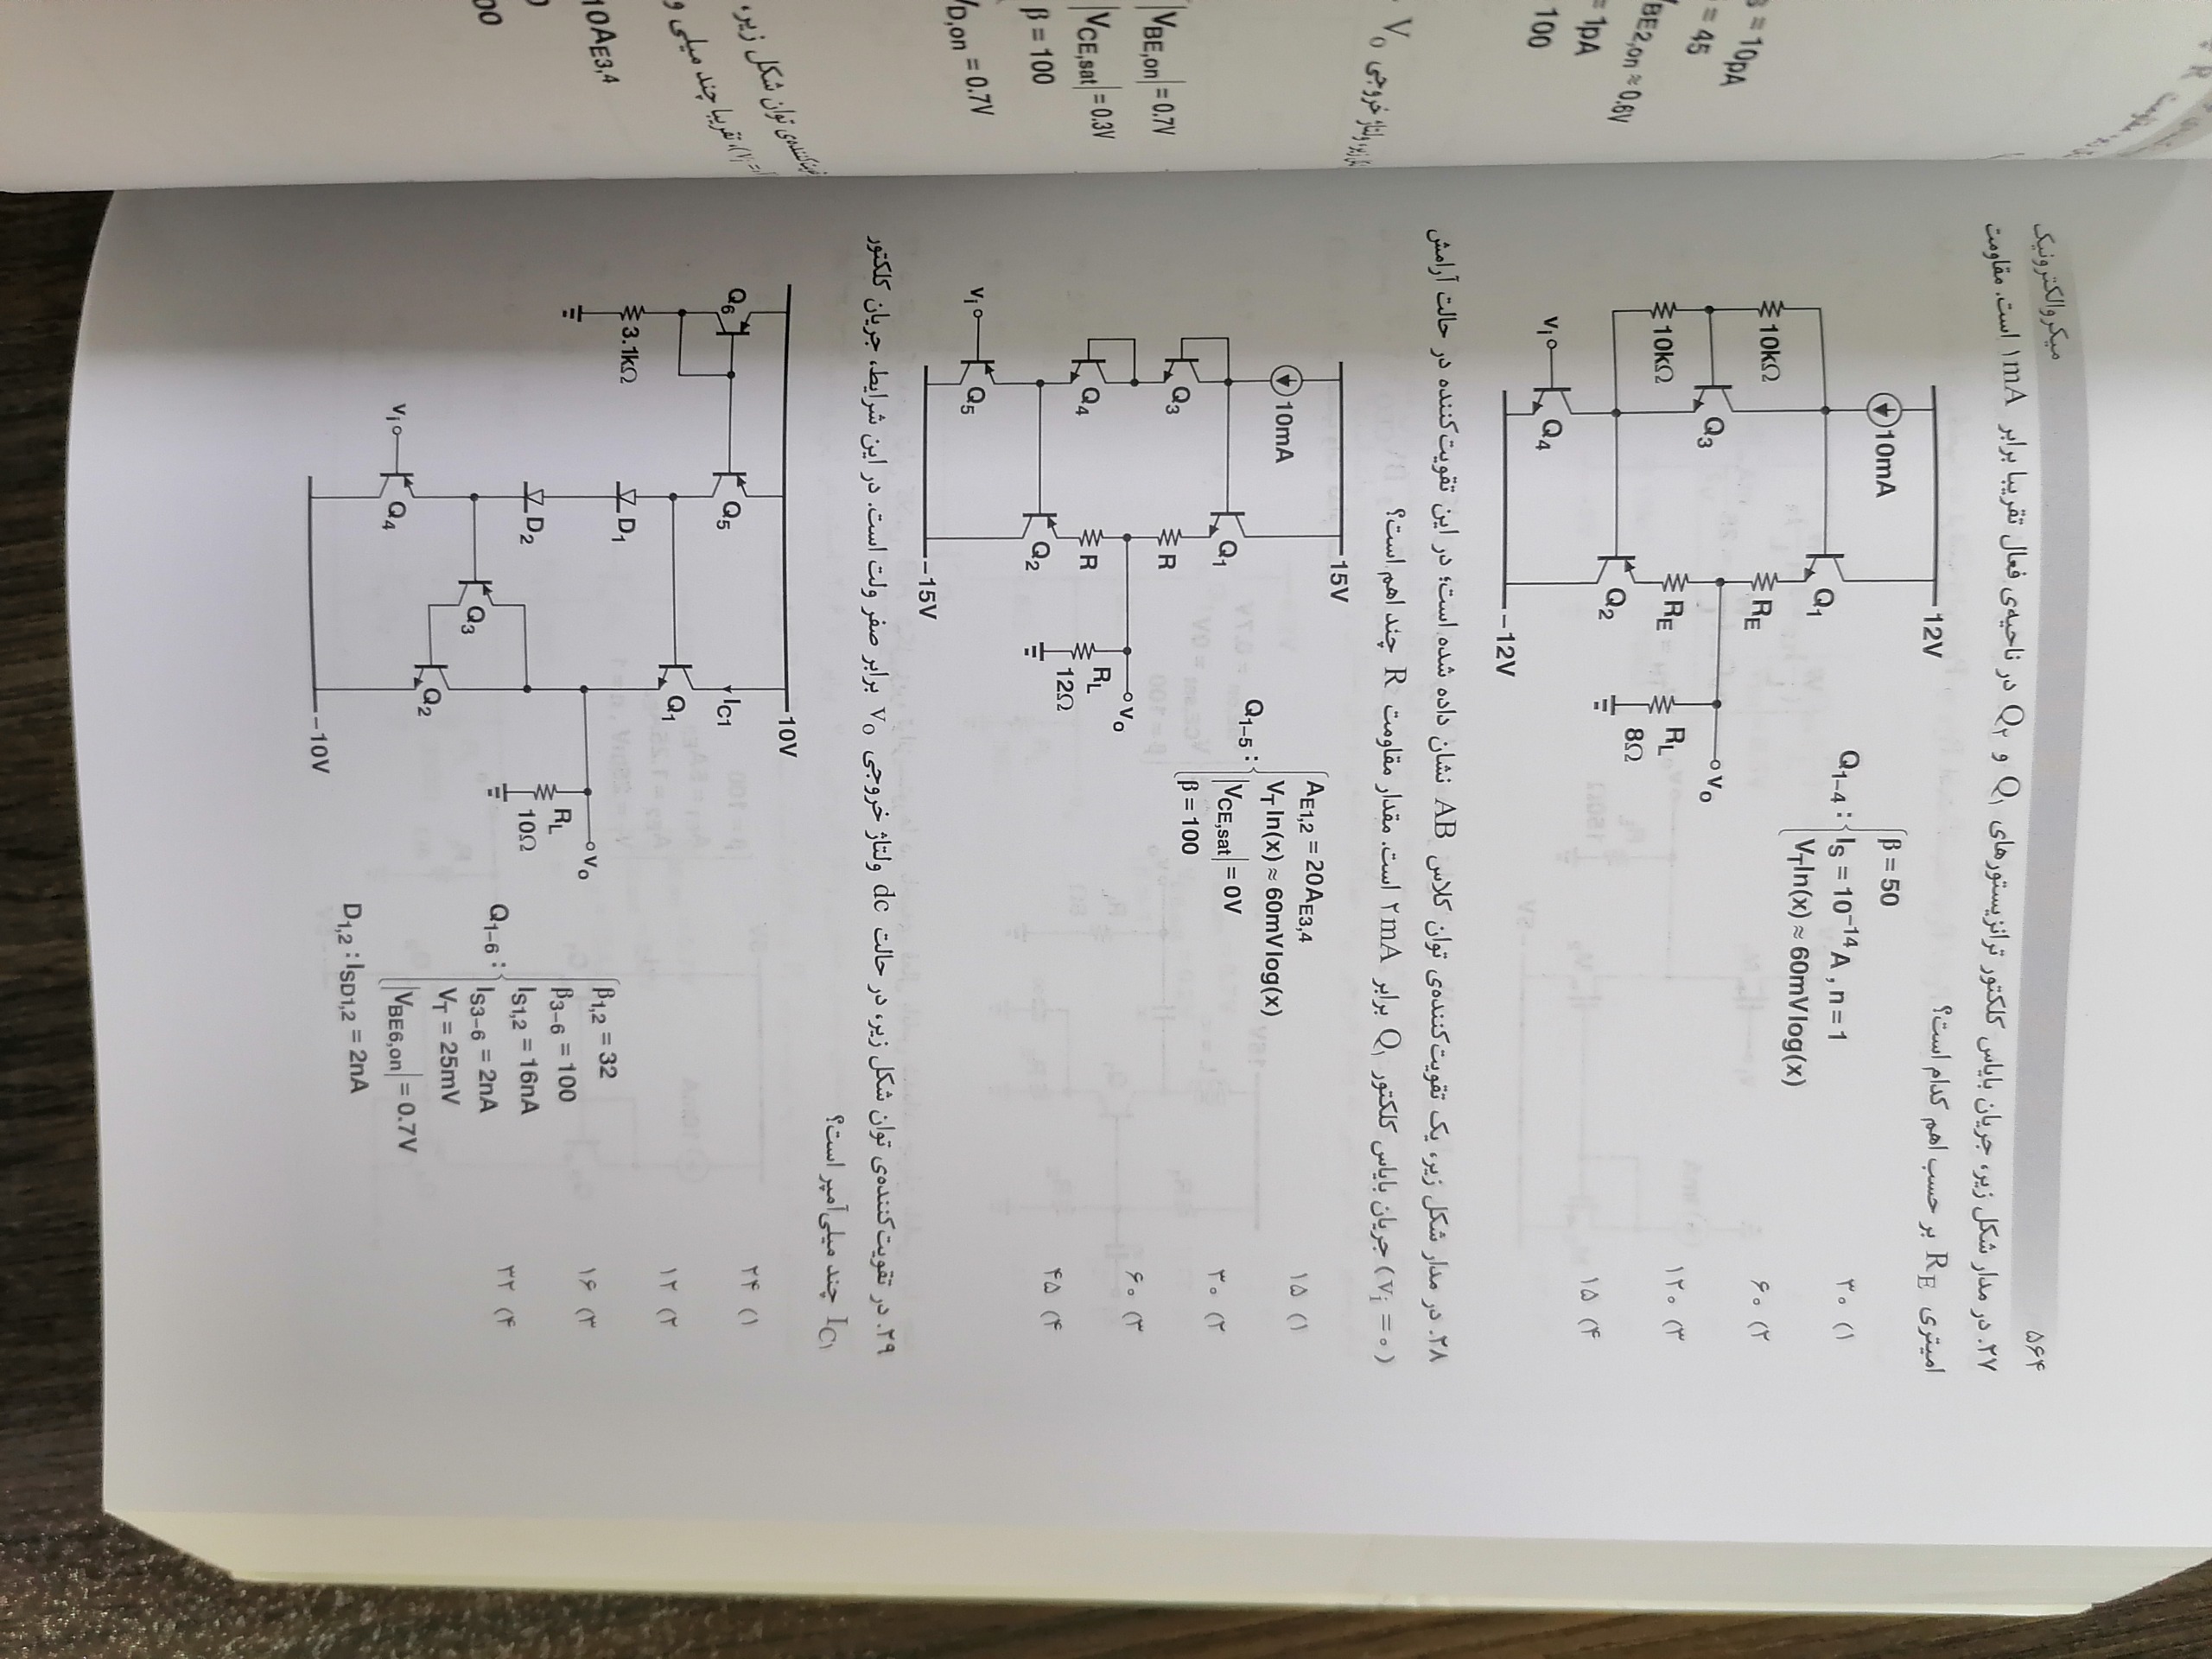 ۵۶۴
میکروالکترونیک
۲۷. در مدار شکل زیر، جریان بایاس کلکتور ترانزیستورهای Q۱ و Q۲ در ناحیه‌ی فعال تقریبا برابر ۱mA است. مقاومت
امیتری RE بر حسب اهم کدام است؟
12V
10mA
10kΩ
10kΩ
Q3
Q1
RE
RE
Q2
Q4
vi
vo
RL
8Ω
-12V
Q1-4 : β = 50
IS = 10-14 A , n = 1
VT ln(x) ≈ 60mV log(x)
۱) ۳۰
۲) ۶۰
۳) ۱۲۰
۴) ۱۵
۲۸. در مدار شکل زیر، یک تقویت‌کننده‌ی توان کلاس AB نشان داده شده است؛ در این تقویت‌کننده در حالت آرامش
(vi = ۰) جریان بایاس کلکتور Q۱ برابر ۲mA است. مقدار مقاومت R چند اهم است؟
15V
10mA
Q3
Q1
R
R
Q4
Q2
Q5
vi
vo
RL
12Ω
-15V
Q1-5 : AE1,2 = 20AE3,4
VT ln(x) ≈ 60mV log(x)
|VCE,sat| = 0V
β = 100
۱) ۱۵
۲) ۳۰
۳) ۶۰
۴) ۴۵
۲۹. در تقویت‌کننده‌ی توان شکل زیر، در حالت dc ولتاژ خروجی vo برابر صفر ولت است. در این شرایط، جریان کلکتور
IC۱ چند میلی‌آمپر است؟
10V
Q6
Q5
IC1
Q1
3.1kΩ
D1
D2
Q3
Q2
Q4
vi
vo
RL
10Ω
-10V
Q1-6 : β1,2 = 32
β3-6 = 100
IS1,2 = 16nA
IS3-6 = 2nA
VT = 25mV
|VBE6,on| = 0.7V
D1,2 : ISD1,2 = 2nA
۱) ۲۴
۲) ۱۲
۳) ۱۶
۴) ۳۲
= 10pA
= 45
VBE2,on ≈ 0.6V
= 1pA
100
ولتاژ خروجی Vo
|VBE,on| = 0.7V
|VCE,sat| = 0.3V
β = 100
VD,on = 0.7V
توان شکل زیر،
تقریبا چند میلی و
10AE3,4
00